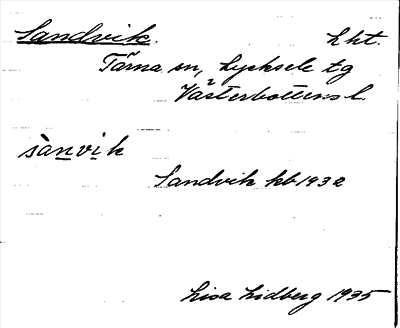 Sandvik. hht.
Tärna sn, Lycksele tg
Västerbottens l.
sànvik
Sandvik kb 1932
Lisa Lidberg 1935